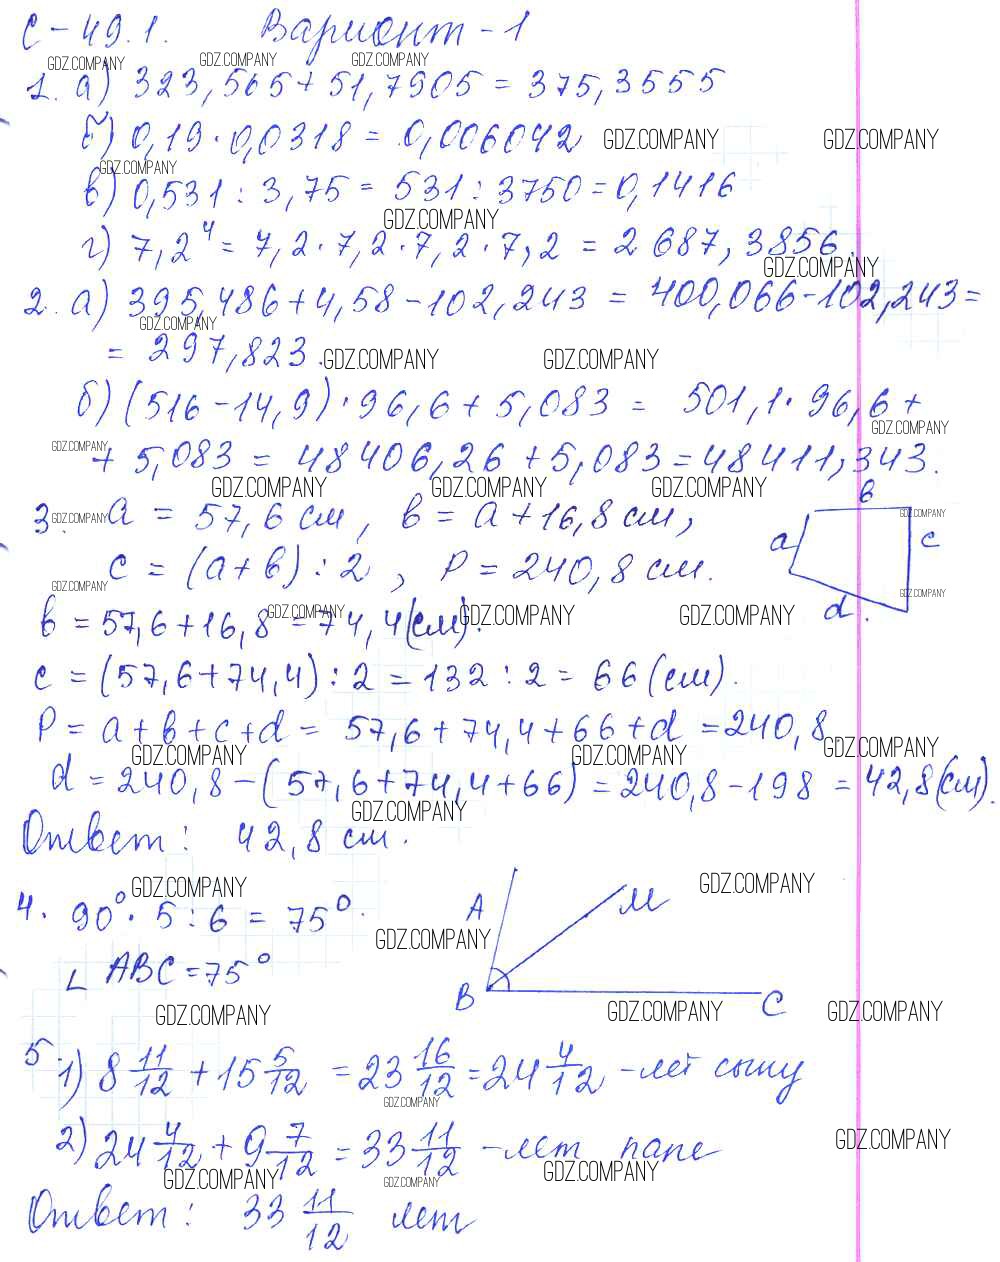 С-49.1. Вариант-1
GDZ.COMPANY GDZ.COMPANY GDZ.COMPANY
1. а) 323,565+51,7905 = 375,3555
б) 0,19·0,0318 = 0,006042 GDZ.COMPANY GDZ.COMPANY
GDZ.COMPANY
в) 0,531 : 3,75 = 531 : 3750 = 0,1416
GDZ.COMPANY
г) 7,2⁴ = 7,2·7,2·7,2·7,2 = 2687,3856.
GDZ.COMPANY
2. а) 395,486+4,58-102,243 = 400,066-102,243=
GDZ.COMPANY
= 297,823. GDZ.COMPANY GDZ.COMPANY
б) (516-14,9)·96,6+5,083 = 501,1·96,6+
GDZ.COMPANY GDZ.COMPANY
+ 5,083 = 48406,26+5,083=48411,343.
GDZ.COMPANY GDZ.COMPANY GDZ.COMPANY
3. GDZ.COMPANY a = 57,6 см, b = a+16,8 см, b GDZ.COMPANY
a c
c = (a+b) : 2, P = 240,8 см.
GDZ.COMPANY GDZ.COMPANY
d.
b = 57,6+16,8 = 74,4(см). GDZ.COMPANY GDZ.COMPANY GDZ.COMPANY
c = (57,6+74,4) : 2 = 132 : 2 = 66 (см).
P = a+b+c+d = 57,6+74,4+66+d = 240,8
GDZ.COMPANY GDZ.COMPANY GDZ.COMPANY
d = 240,8 - (57,6+74,4+66) = 240,8-198 = 42,8(см).
GDZ.COMPANY
Ответ: 42,8 см.
GDZ.COMPANY GDZ.COMPANY
4. 90°·5:6 = 75°. A M
GDZ.COMPANY
∟ ABC = 75° B C
GDZ.COMPANY GDZ.COMPANY GDZ.COMPANY
5 1) 8 11/12 + 15 5/12 = 23 16/12 = 24 4/12 - лет сыну
GDZ.COMPANY
2) 24 4/12 + 9 7/12 = 33 11/12 - лет папе GDZ.COMPANY
GDZ.COMPANY GDZ.COMPANY GDZ.COMPANY
Ответ: 33 11/12 лет